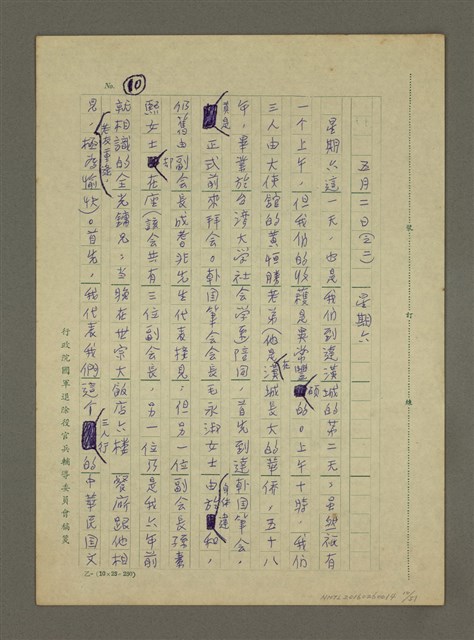 No. 10
五月二日(之二) 星期六
星期六這一天，也是我們到達漢城的第二天，虽然祇有
一个上午，但我們的收穫是異常豐碩的。上午十時，我們
三人由大使館的黃恒勝老弟(他是在漢城長大的華僑，五十八
年，畢業於台湾大学社会学系)陪同，首先到達韓国筆会，
算是正式前來拜会。韓国筆会会長毛永淑女士由於身体違和，
仍舊由副会長成耆兆先生代表接見；但另一位副会長孫素
熙女士却在座(該会共有三位副会長，另一位乃是我六年前
就相識的全光鏞兄；当晚在世宗大飯店六樓 餐廳跟他相
見，老友重逢，極为愉快)。首先，我代表我們這个三人行的中華民国文
行政院國軍退除役官兵輔導委員會稿箋
乙一(10×25=250)
裝 訂 線
NMTL20160260014